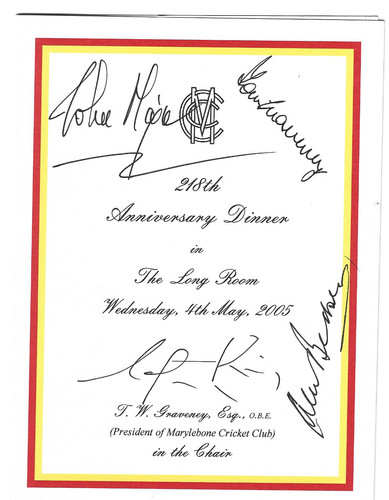 John Major
MCC
Tom Graveney
218th
Anniversary Dinner
in
The Long Room
Wednesday, 4th May, 2005
T. W. Graveney, Esq., O.B.E.
(President of Marylebone Cricket Club)
in the Chair